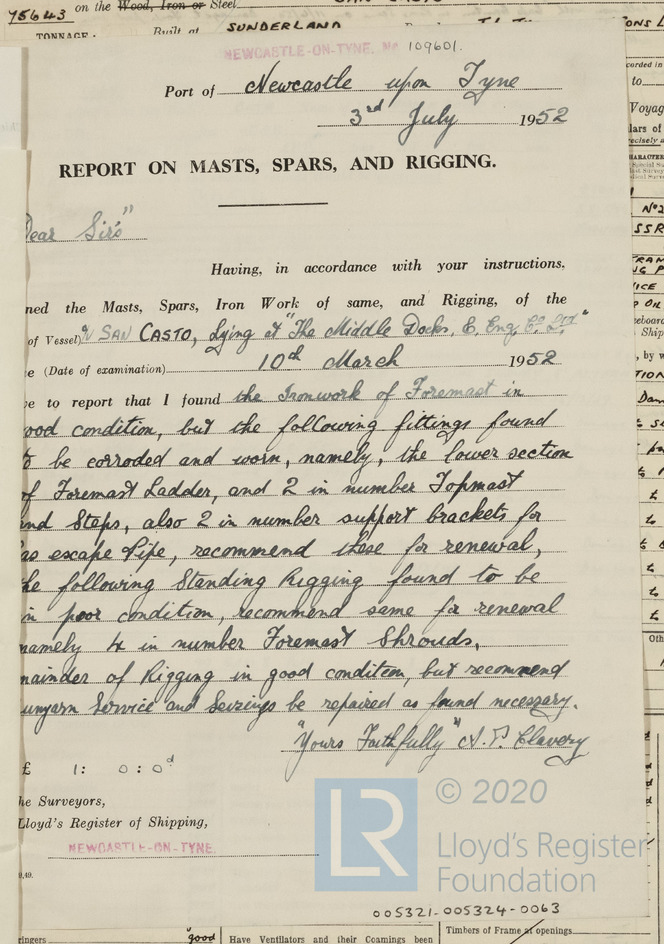 75643 on the Wood, Iron or Steel
TONNAGE. Built at SUNDERLAND
NEWCASTLE-ON-TYNE. No 109601.
Port of Newcastle upon Tyne
3rd July 1952
REPORT ON MASTS, SPARS, AND RIGGING.
Dear Sirs"
Having, in accordance with your instructions,
ned the Masts, Spars, Iron Work of same, and Rigging, of the
of Vessel) SAN CASTO, Lying at "The Middle Docks, E. Eng. Co. Ltd"
e (Date of examination) 10th March 1952
ve to report that I found the Ironwork of Foremast in
ood condition, but the following fittings found
o be corroded and worn, namely, the lower section
of Foremast Ladder, and 2 in number Topmast
and Steps, also 2 in number support brackets for
as escape Pipe, recommend these for renewal,
he following Standing Rigging found to be
in poor condition, recommend same for renewal
namely 4 in number Foremast Shrouds,
mainder of Rigging in good condition, but recommend
unyarn Service and Seizings be repaired as found necessary.
"Yours Faithfully"
£ 1: 0: 0d
he Surveyors,
Lloyd's Register of Shipping,
NEWCASTLE-ON-TYNE.
9,49.
LR
© 2020
Lloyd's Register
Foundation
005321-005324-0063
ringers "good Have Ventilators and their Coamings been Timbers of Frame at openings